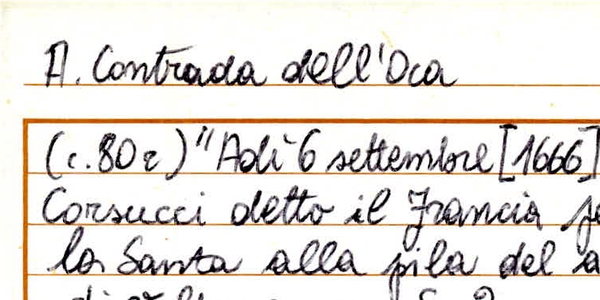 A. Contrada dell'Oca
(c.80r) "Adì 6 settembre [1666]
Corsucci detto il Francia fe
la Santa alla pila del a